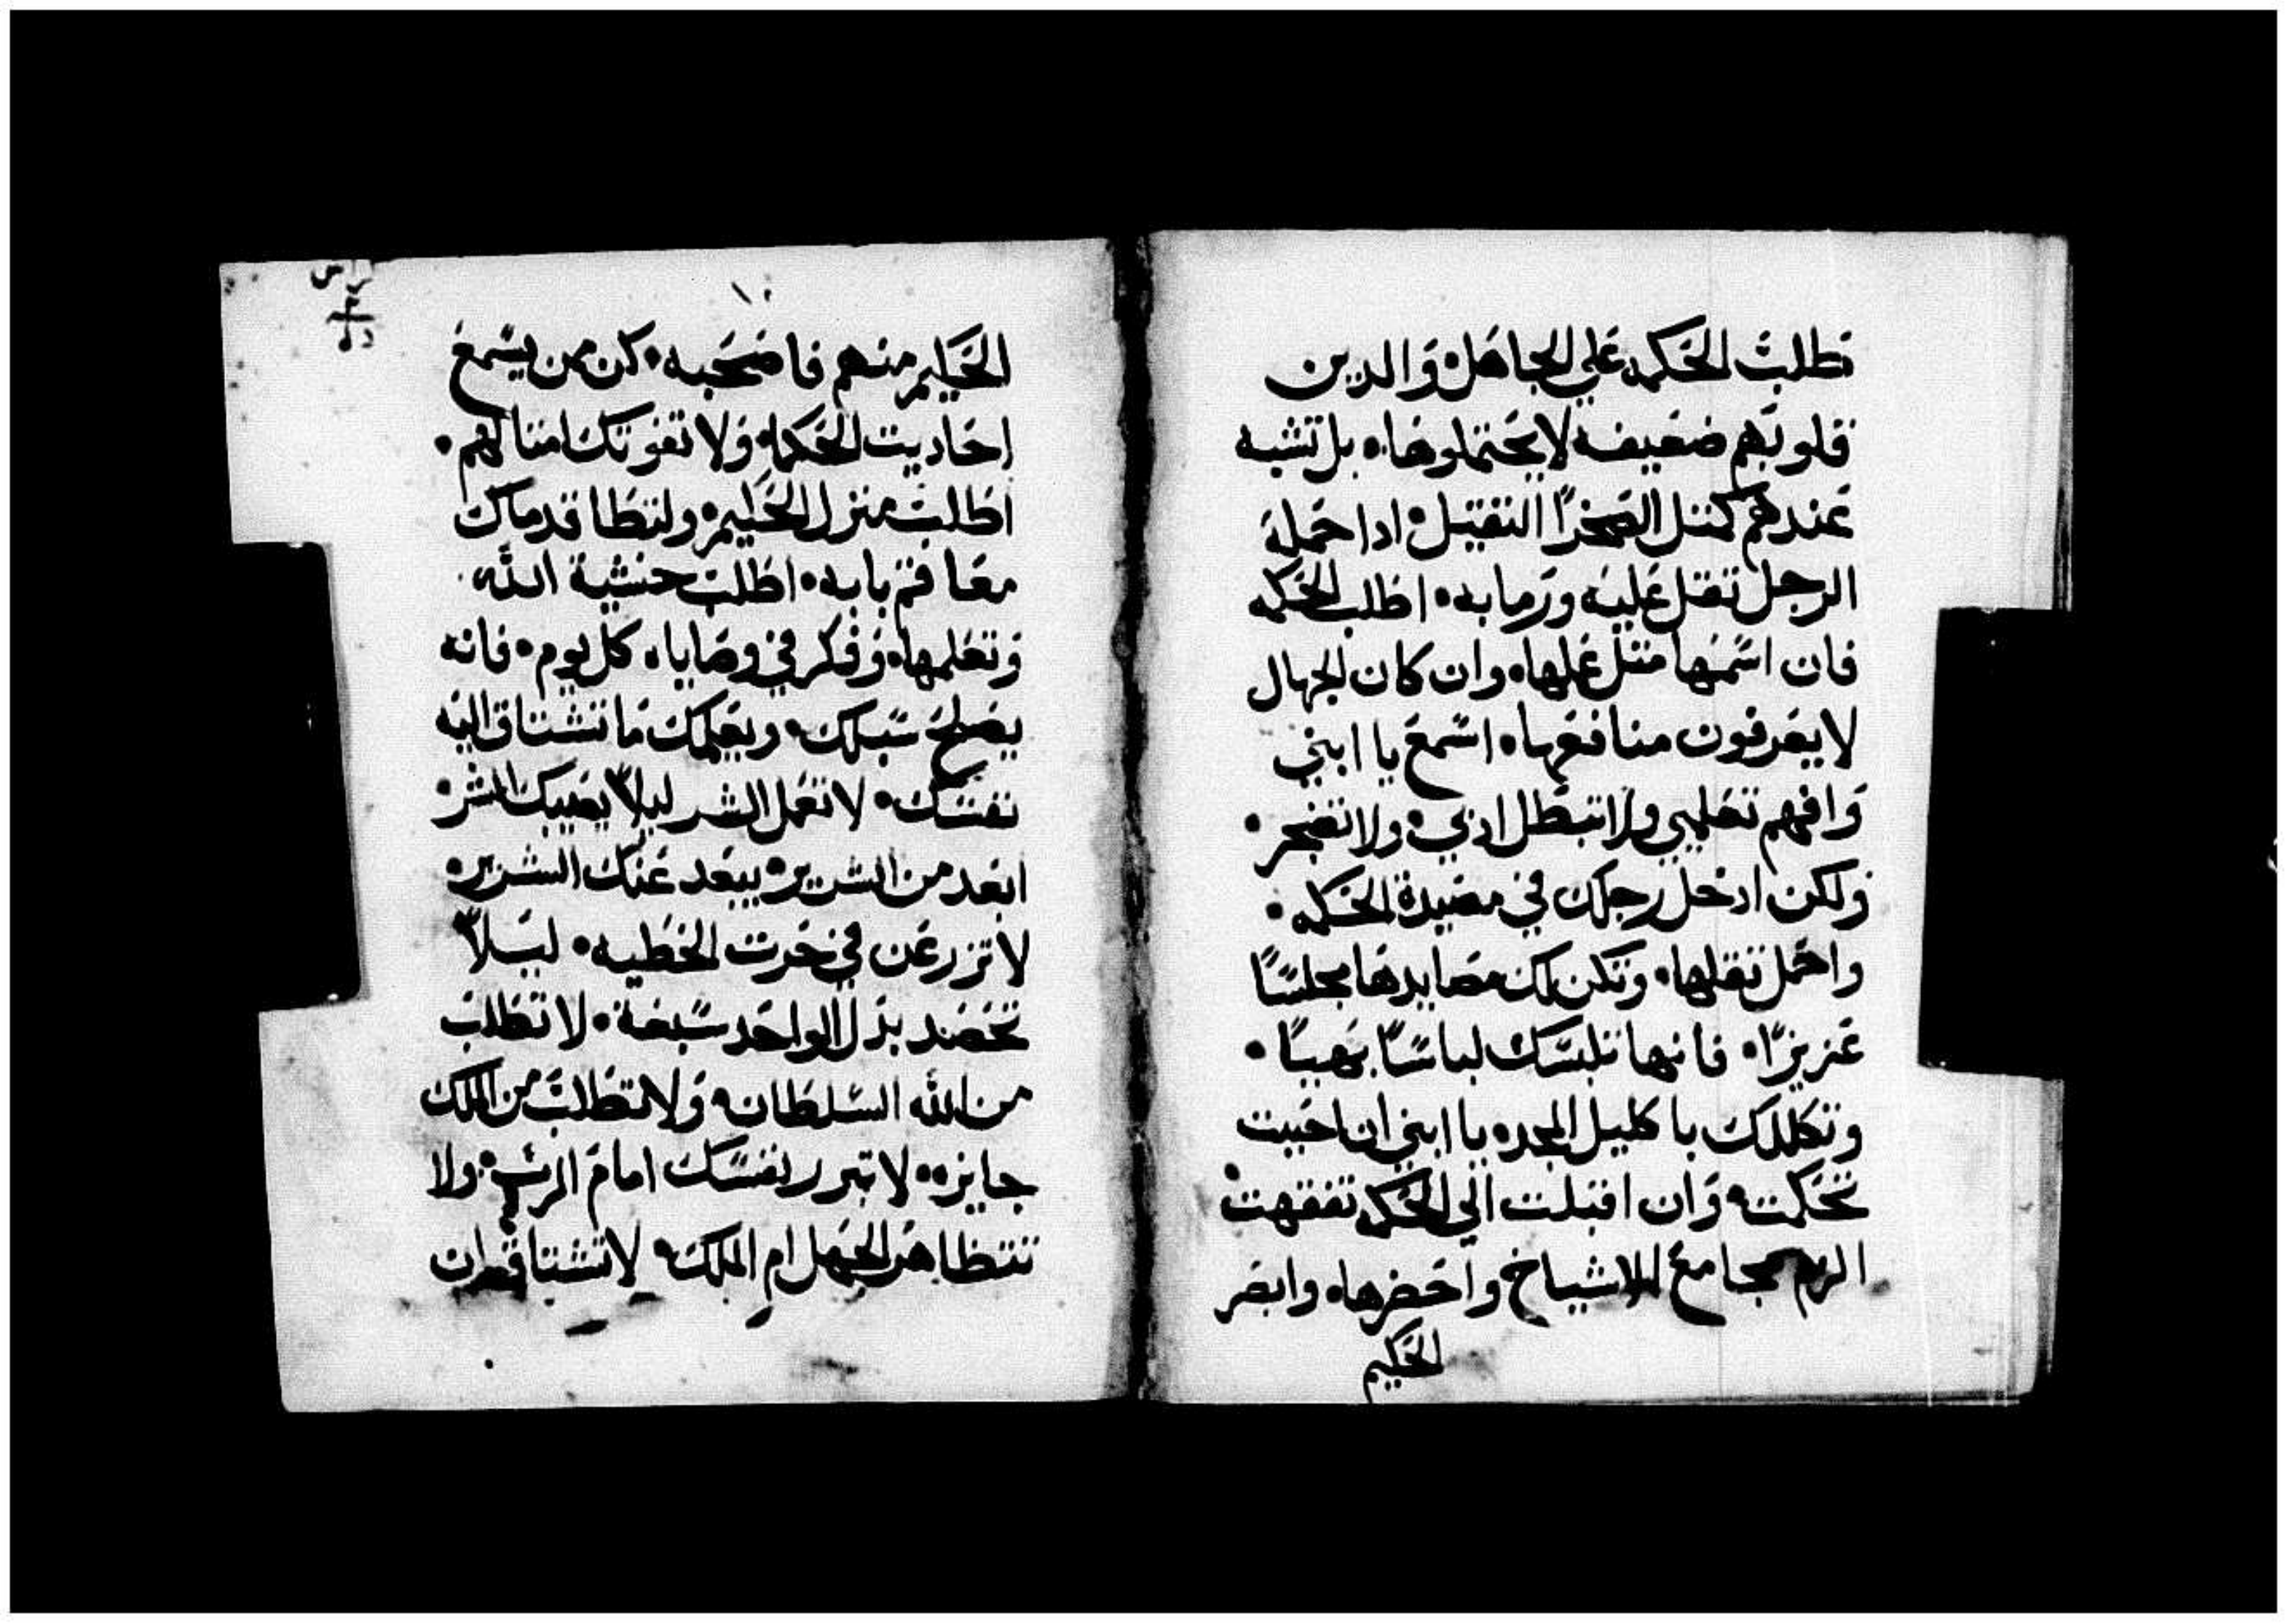 تطلبّ الحكمه علي الجاهل وَالدين
قلوبهم ضعيفه لا يحتملوها• بل تشبه
عندهم كمتل الصخرا التقيل• ادا حمله
الرجل تقل عليه ورما به• اطلب الحكمه
فان اسمها متل عملها• وان كان الجهال
لا يعرفون منافعها• اسمع يا ابني
وافهم تعليمي ولا تبطل ادبي• ولا تضجر•
ولكن ادخل رجلك في مصيدة الحكمه•
واحمل تقلها• وتكن لك مصايدها مجلسًا
عزيزًا• فانها تلبسك لباسًا بهيبًا•
وتكللك باكليل المجد• يا ابني ان احببت
تحكمت• وان اقبلت الي الحكمه تفقهت•
الزم مجامع الاشياخ واحضرها• وابصر
الحكيم
الحكيم منهم فاصحبه• كن ممن يسمع
احاديت الحكما• ولا تفوتك امتالهم•
اطلب منزل الحكيم• ولتطا قدماك
معا فتم بابه• اطلب خشية الله•
وتعلمها• وفكر في وصاياه كل يوم• فانه
يصلح سبلك• ويعلمك ما تشتاق اليه
نفسك• لا تعمل الشر ليلاّ يصيبك الشر•
ابعد من الشرير• يبعد عنك الشرير•
لا تزرعن في حرت الخطيه• ليلاّ
تحصد بدل الواحد سبعة• لا تطلب
من الله السلطان• ولا تطلب من الملك
جايزه• لا تبرر نفسك امام الرب• ولا
تتظاهر الجهل ام الملك• لا تشتاق ان